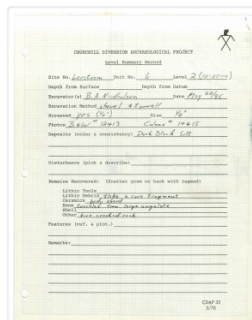 CHURCHILL DIVERSION ARCHAEOLOGICAL PROJECT
Level Summary Record
Site No. Unit No. 6 Level 2 (10-20cm)
Depth from Surface Depth from Datum
Excavator(s) B.A. Nicholson Date May
Excavation Method shovel & trowel
Screened yes (¼") Size ¼"
Photos B&W 12413 Colour 14415
Deposits (color & consistency) Dark Black Silt
Disturbance (plot & describe)
Remains Recovered: (Scatter gram on back with legend)
Lithic Tools
Lithic Debris flake & core fragment
Ceramics body sherd
Bone from large ungulate
Shell
Other fire cracked rock
Features (ref. & plot.)
Remarks:
CDAP 03
5/75